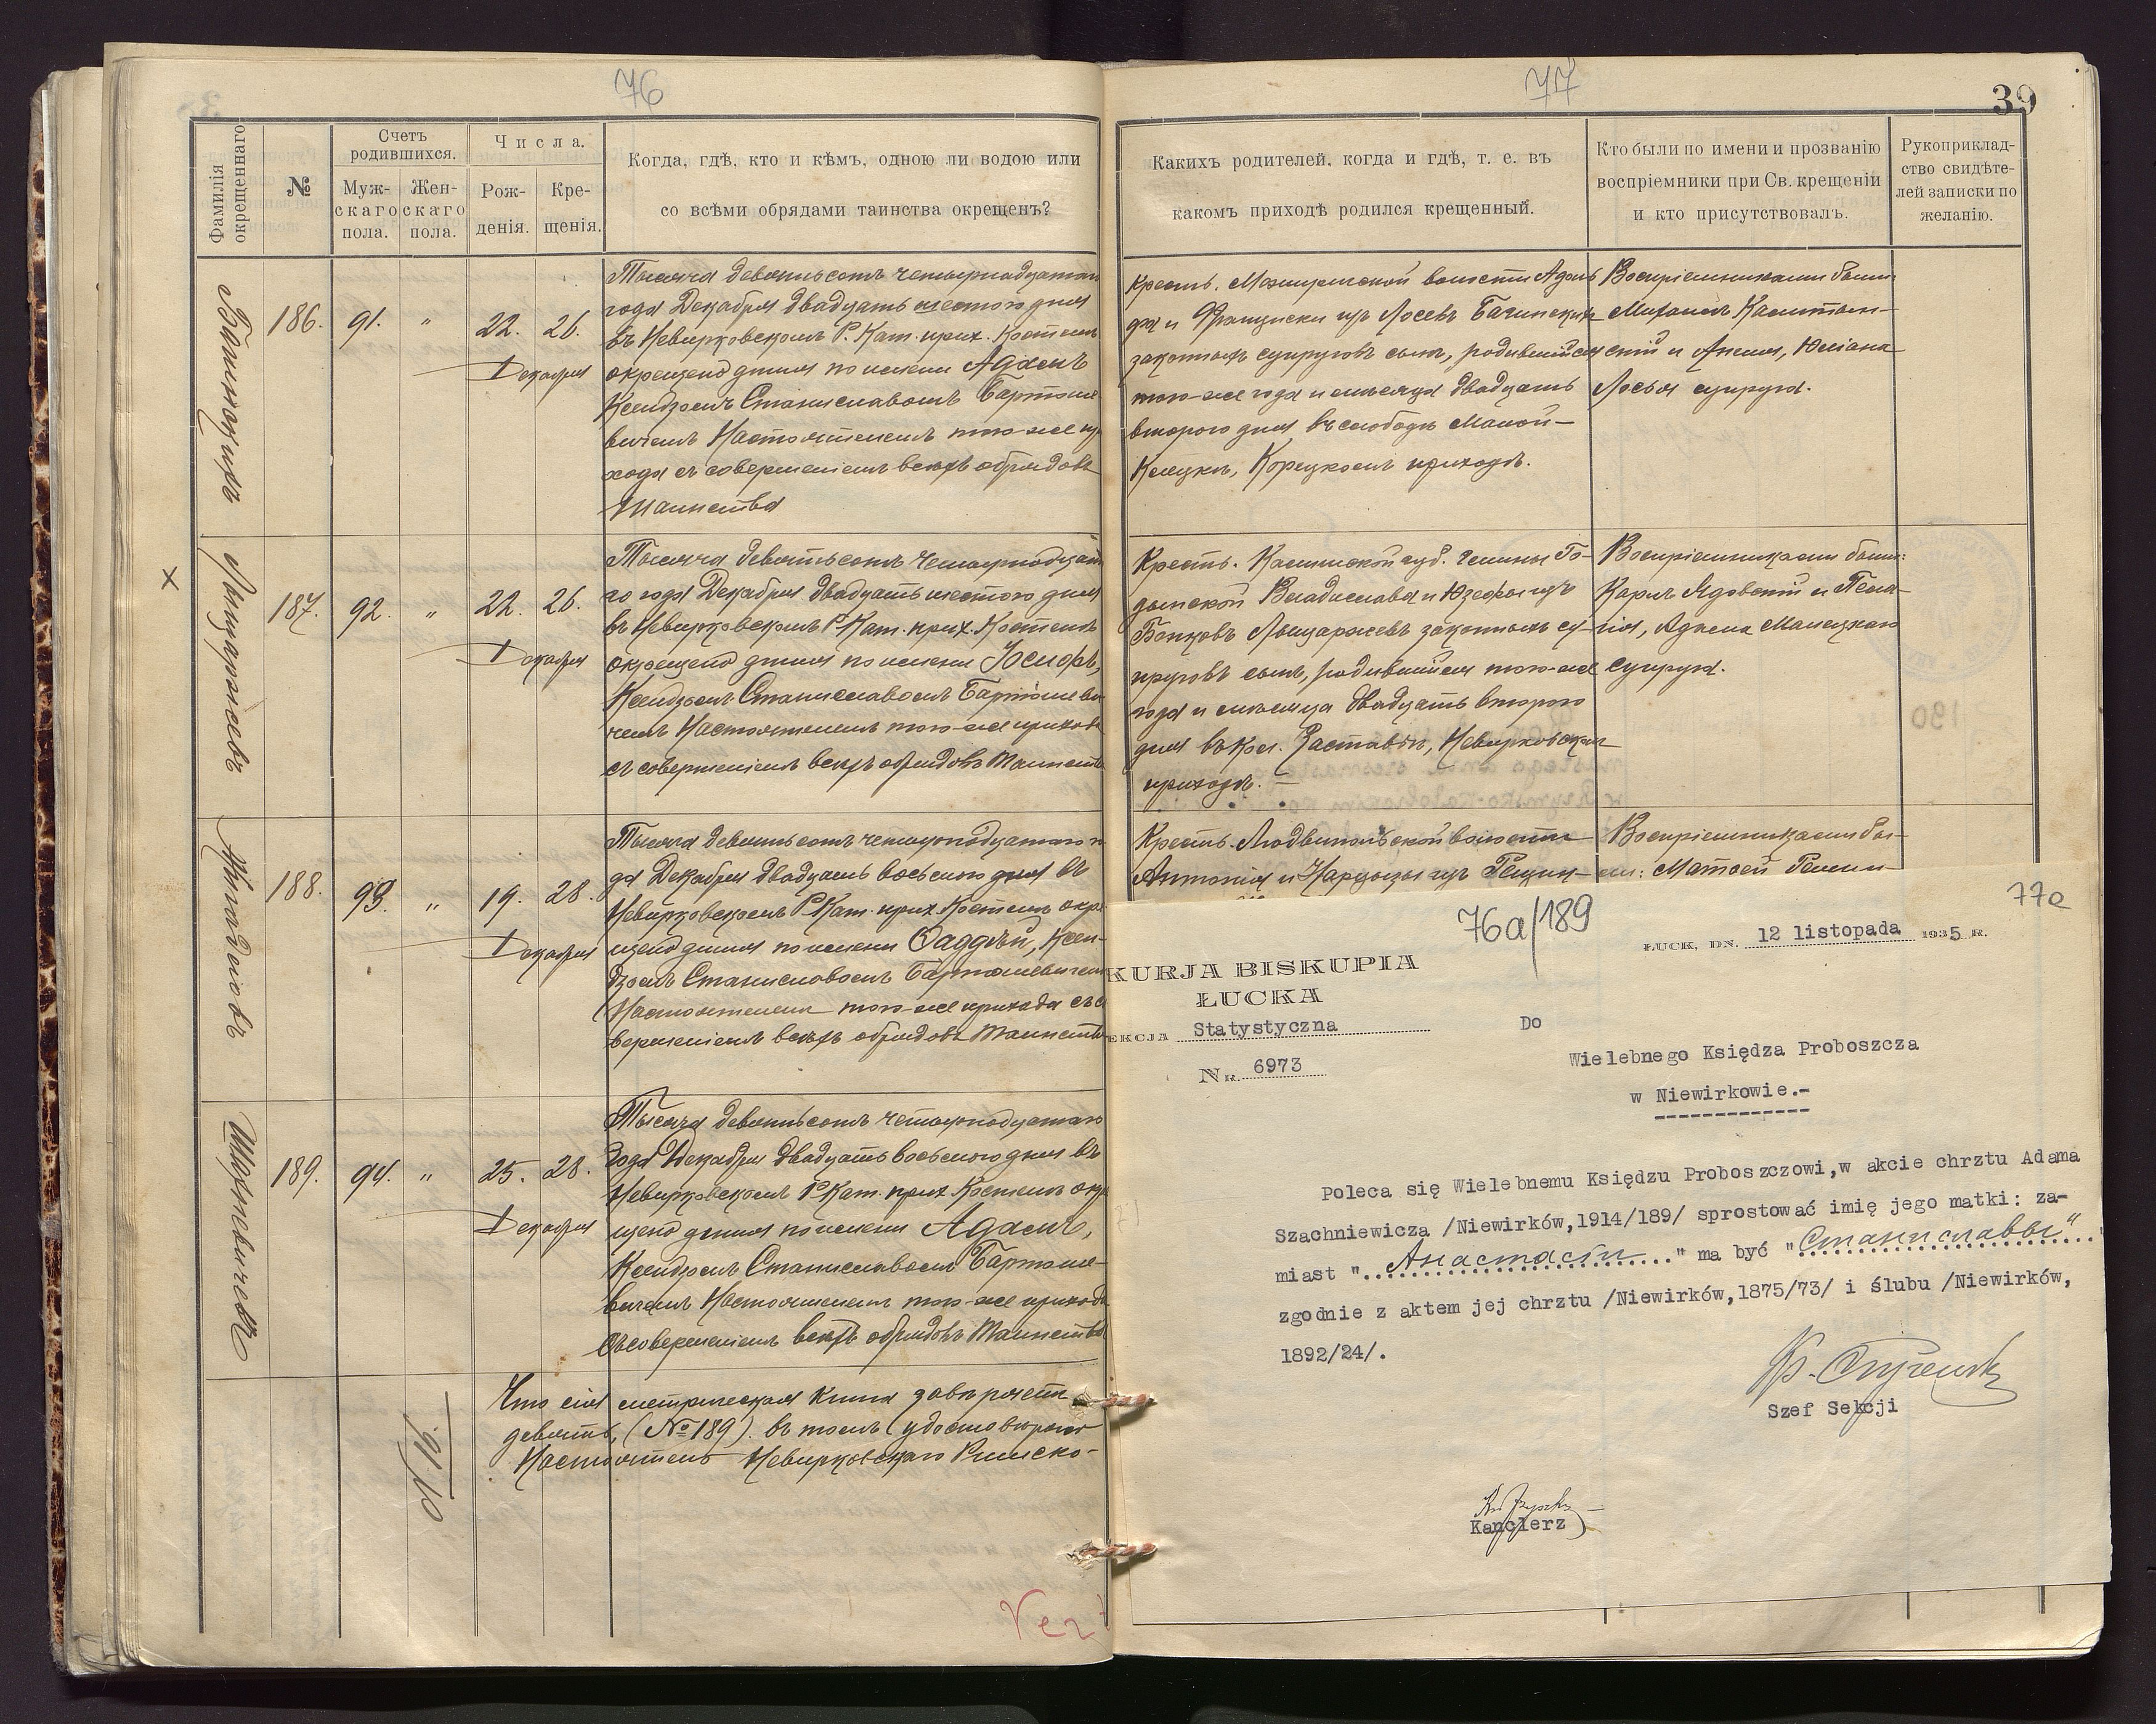 76
Фамилія окрещеннаго
№
Счетъ родившихся.
Муж-
скаго
пола.
Жен-
скаго
пола.
Числа.
Рож-
денія.
Кре-
щенія.
Когда, гдѣ, кто и кѣмъ, одною ли водою или
со всѣми обрядами таинства окрещенъ?
186. 91. " 22. 26.
Декабря
Тысяча девятьсотъ четырнадцатаго
года Декабря двадцать шестого дня
въ Невирковскомъ Р. Кат. прих. Костелѣ
окрещено дитя по имени Адамъ
Ксендзомъ Станиславомъ Бартоше-
вичемъ Настоятелемъ того-же при
хода съ совершеніемъ всѣхъ обрядовъ
Таинства
×
Лыщаржевъ
187. 92. " 22. 26.
Декабря
Тысяча девятьсотъ четырнадцата
го года Декабря двадцать шестого дня
въ Невирковскомъ Р. Кат. прих. Костелѣ
окрещено дитя по имени Іосифъ,
Ксендзомъ Станиславомъ Бартошеви
чемъ Настоятелемъ того-же прихода
съ совершеніемъ всѣхъ обрядовъ Таинства
188. 93. " 19. 28.
Декабря
Тысяча девятьсотъ четырнадцатаго го
да Декабря двадцать восьмого дня въ
Невирковскомъ Р. Кат. прих. Костелѣ окре
щено дитя по имени Фаддѣй, Ксен-
дзомъ Станиславомъ Бартошевичемъ
Настоятелемъ того-же прихода съ со
вершеніемъ всѣхъ обрядовъ Таинства
Шахневичевъ
189. 94. " 25. 28.
Декабря
Тысяча девятьсотъ четырнадцатаго
года Декабря двадцать восьмого дня въ
Невирковскомъ Р. Кат. прих. Костелѣ окре
щено дитя по имени Адамъ,
Ксендзомъ Станиславомъ Бартоше-
вичемъ Настоятелемъ того-же прихода
съ совершеніемъ всѣхъ обрядовъ Таинства
Что сія метрическая книга
девять, (№ 189). въ томъ удостовѣряю
Настоятель Невирковскаго Римско-
77
39
Какихъ родителей, когда и гдѣ, т. е. въ
какомъ приходѣ родился крещенный.
Кто были по имени и прозванію
воспріемники при Св. крещеніи
и кто присутствовалъ.
Рукоприклад-
ство свидѣте-
лей записки по
желанію.
Кресть. Межиричской волости Адоль
фа и Францишки изъ Лосевъ
законныхъ супруговъ сынъ, родившійся
того-же года и мѣсяца двадцать
второго дня въ слободѣ Малой-
Клецкѣ, Корецкомъ приходѣ.
Воспріемниками были:
Михаилъ
и Анеля, Юліана
Лосья супруга.
Крестъ. губ. гмины Го-
Владислава и Юзефы изъ
Лыщаржевъ законныхъ су-
пруговъ сынъ, родившійся того-же
года и мѣсяца двадцать второго
дня въ кол. Заставьѣ, Невирковскомъ
приходѣ.
Воспріемниками были:
Карлъ Ядовскій и Пела-
гія, Адама Малецкаго
супруга.
Крестъ. Людвипольской волости
Антонія и
Воспріемниками бы-
ли: Матвей
76a/189
77a
ŁUCK, DN. 12 listopada 1935 R.
KURJA BISKUPIA
ŁUCKA
EKCJA Statystyczna
NR. 6973
Do
Wielebnego Księdza Proboszcza
w Niewirkowie.-
Poleca się Wielebnemu Księdzu Proboszczowi,w akcie chrztu Adama
Szachniewicza /Niewirków,1914/189/ sprostować imię jego matki: za-
miast "..Анастасіи..." ma być "Станиславы"
zgodnie z aktem jej chrztu /Niewirków,1875/73/ i ślubu /Niewirków,
1892/24/.
Szef Sekcji
Kanclerz
Ver